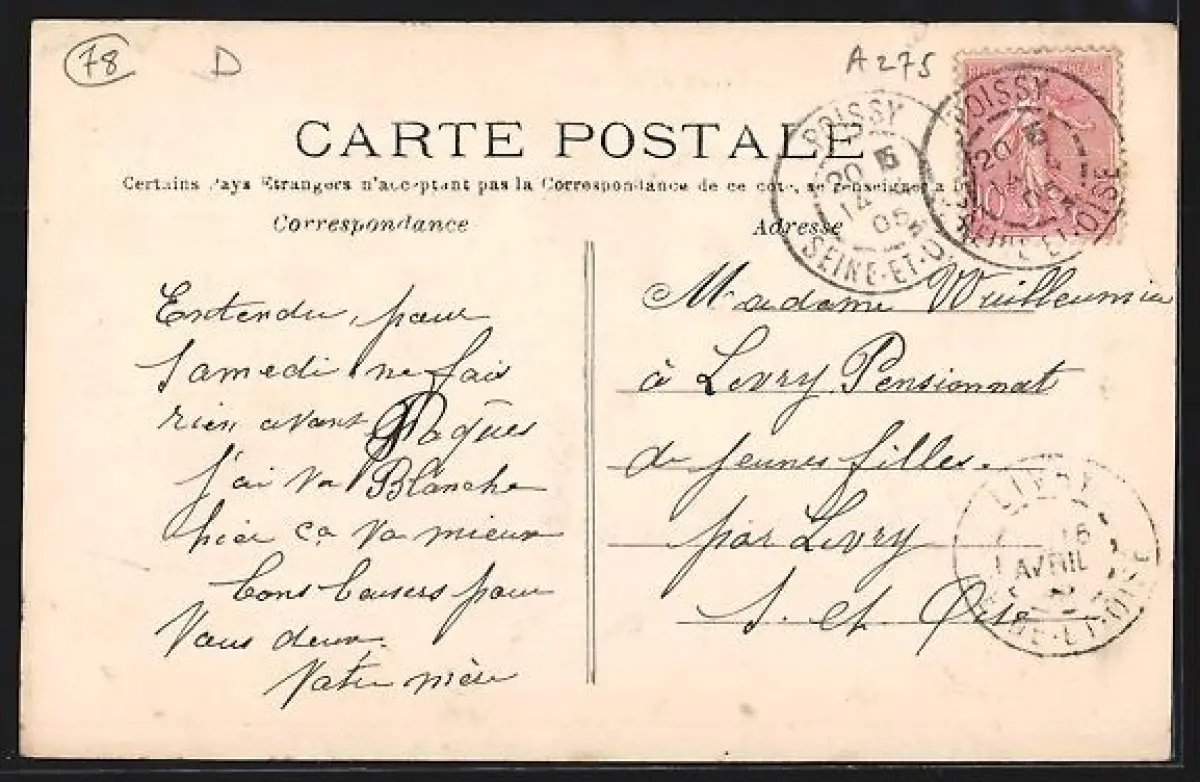 78
D
A275
CARTE POSTALE
Certains Pays Etrangers n'acceptent pas la Correspondance de ce coté, se renseigner a
Correspondance
Adresse
POISSY
20 15
14
05
SEINE-ET-O
POISSY
20 15
14 4
05
SEINE-ET-OISE
10
Entendu, pour
Samedi ne fais
rien avant Pâques
j'ai vu Blanche
hier ça va mieux
bons baisers pour
Vous deux.
Votre mère
Madame Vuilleumier
à Livry Pensionnat
de jeunes filles.
par Livry
S. et Oise
LIVRY
16
AVRIL
SEINE-ET-OISE